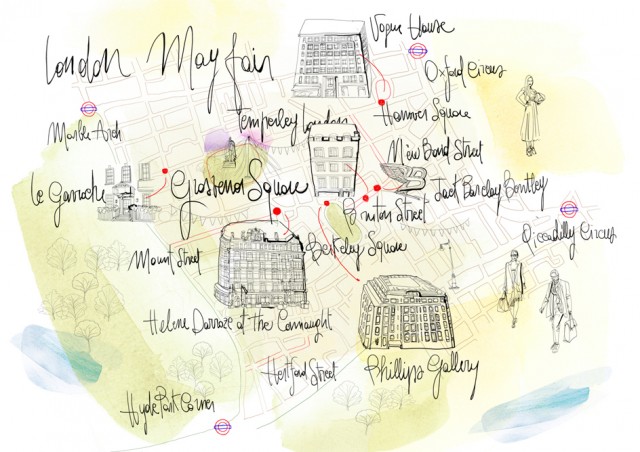 Vogue House
London Mayfair
Oxford Circus
Marble Arch
Temperley London
Hannover Square
New Bond Street
Le Gavroche
Grosvenor Square
Jack Barclay Bentley
Bruton Street
Piccadilly Circus
Mount Street
Berkeley Square
Helene Darroze at the Connaught
Hertford Street
Phillips Gallery
Hyde Park Corner